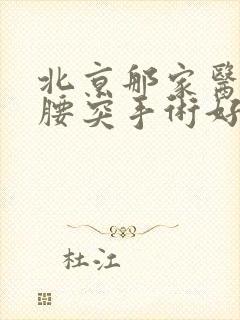 北京那家醫
腰突手術好
杜江